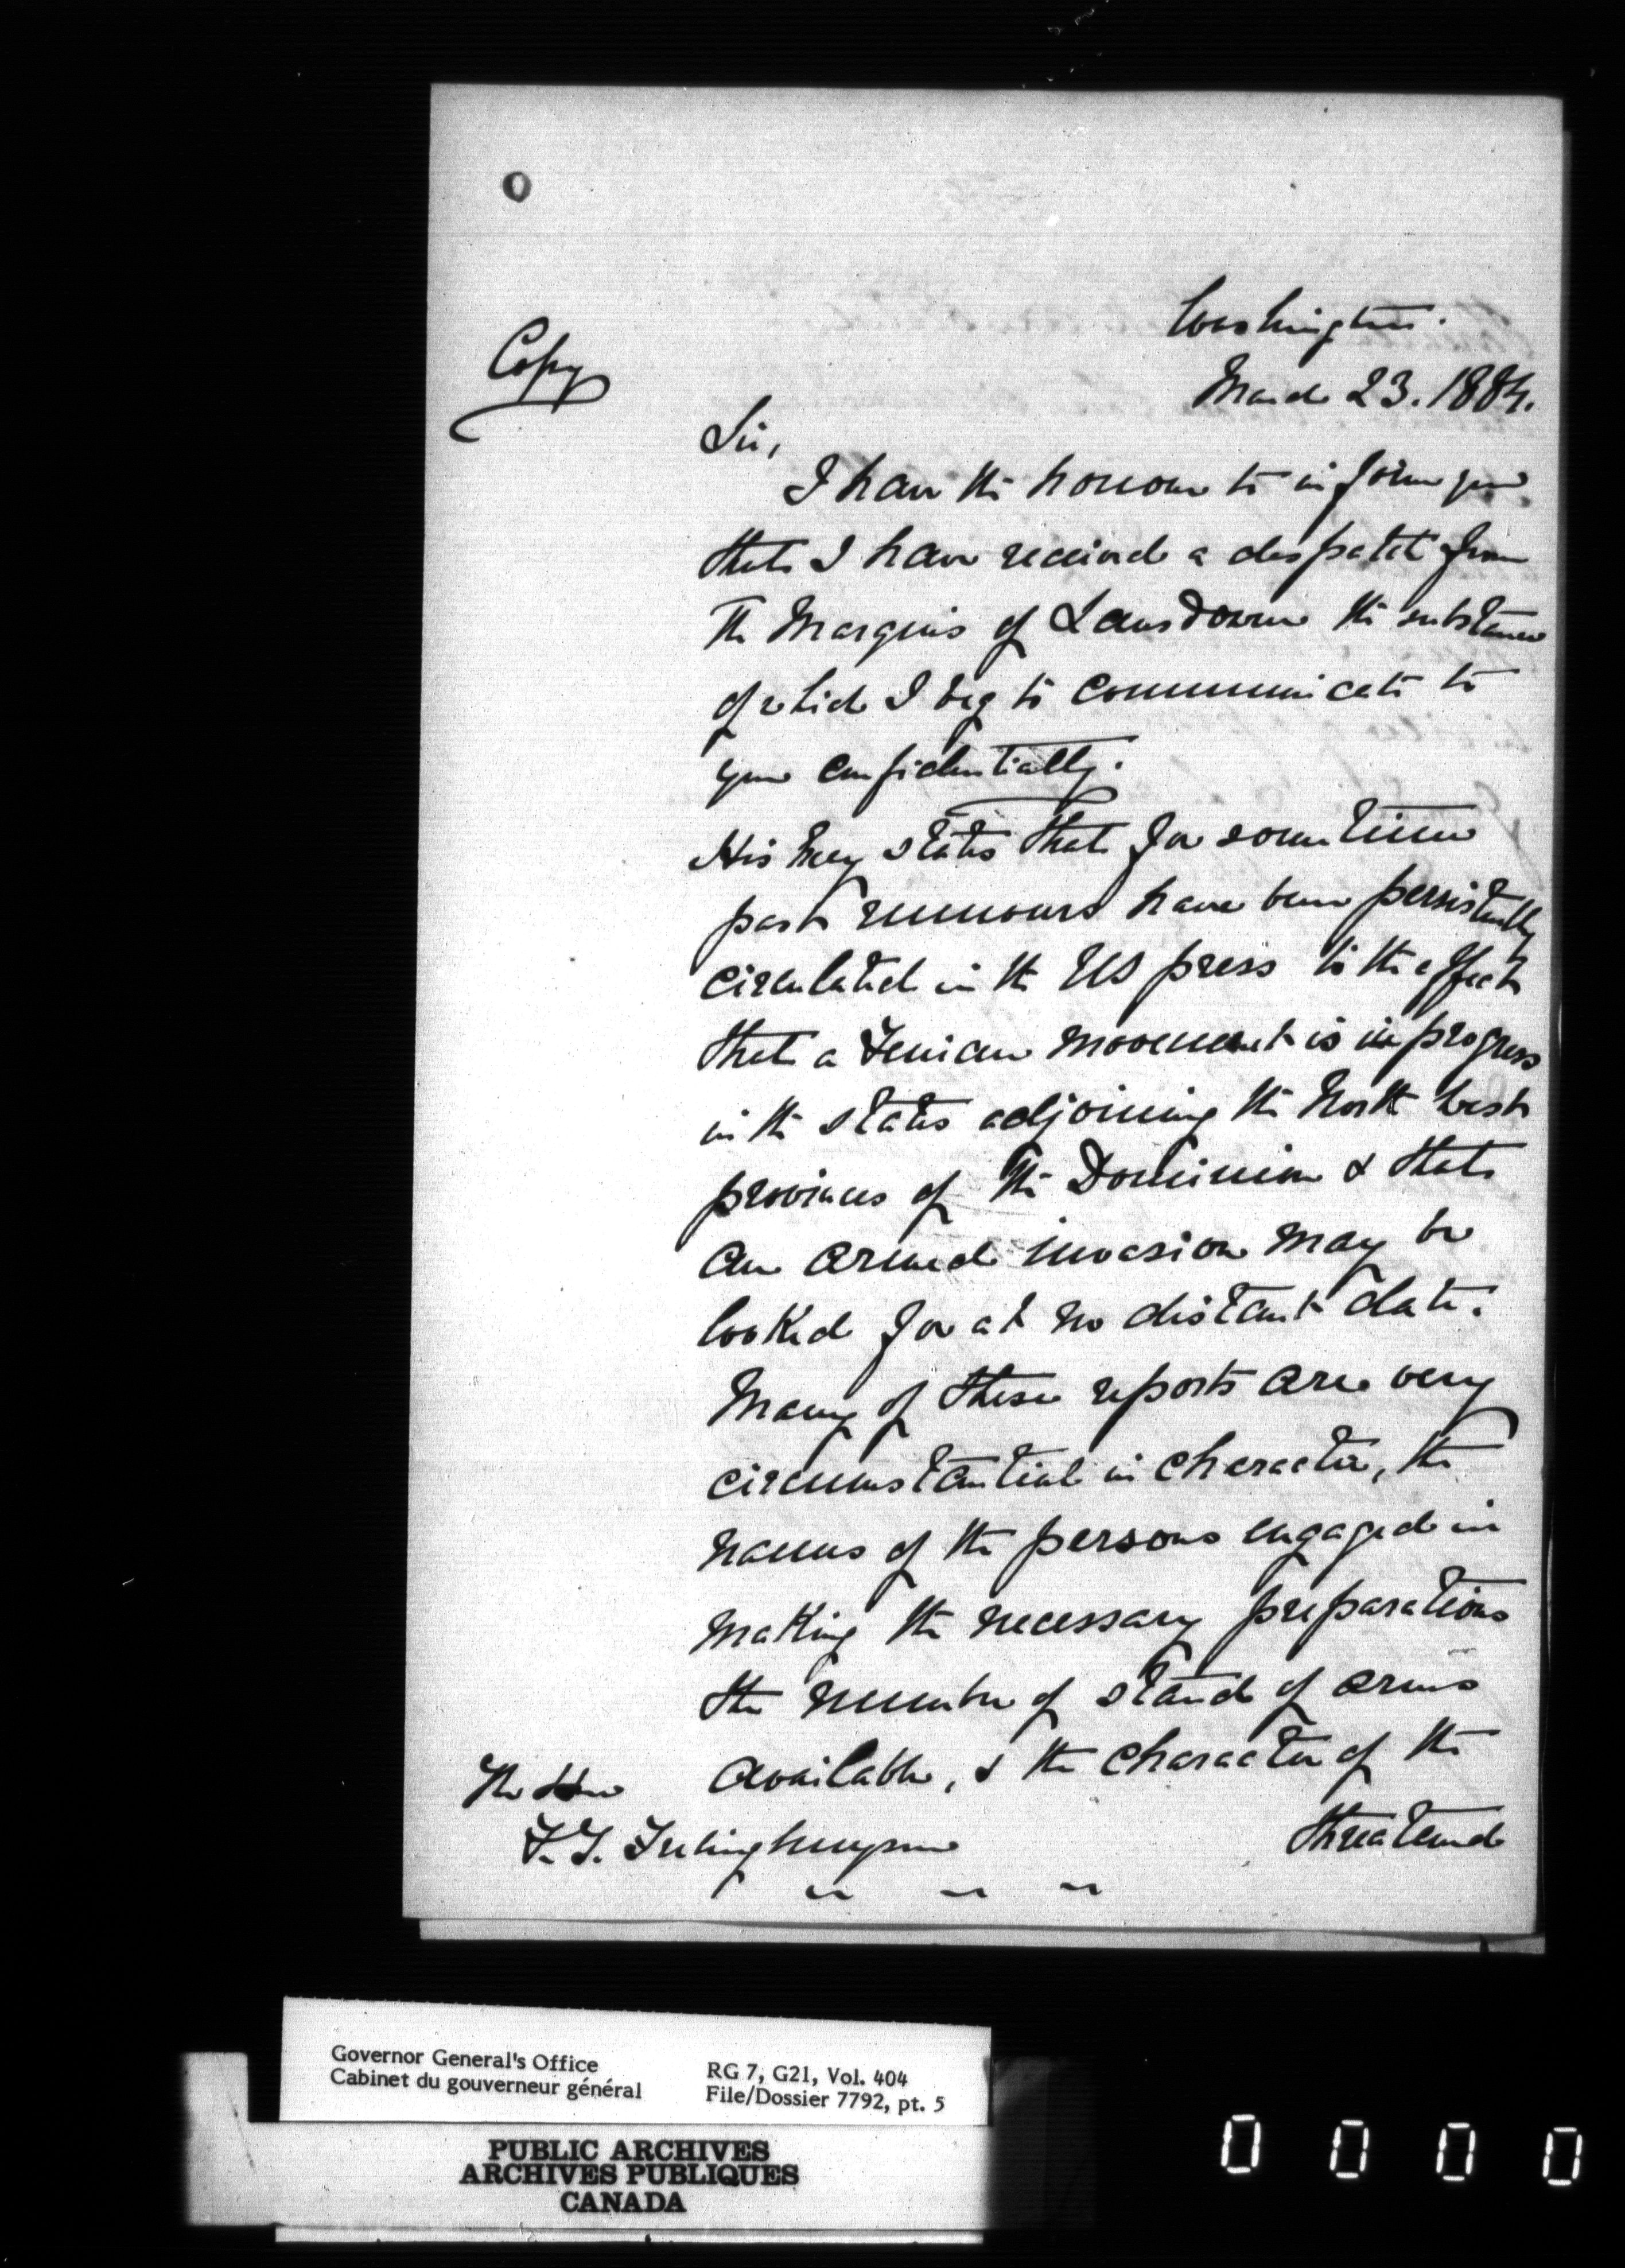 Washington.
Copy
March 23. 1884.
Sir,
I have the honour to inform you
that I have received a despatch from
the Marquis of Lansdowne the substance
of which I beg to communicate to
you confidentially.
His Excy states that for sometime
past rumours have been persistently
circulated in the US press to the effect
that a Fenian movement is in progress
in the states adjoining the North West
provinces of the Dominion & that
an armed invasion may be
looked for at no distant date.
Many of these reports are very
circumstantial in character, the
names of the persons engaged in
making the necessary preparations
the number of stand of arms
available, & the character of the
threatened
The Hon
F. T. Frelinghuysen
Governor General's Office
Cabinet du gouverneur général
RG 7, G21, Vol. 404
File/Dossier 7792, pt. 5
PUBLIC ARCHIVES
ARCHIVES PUBLIQUES
CANADA
0 0 0 0